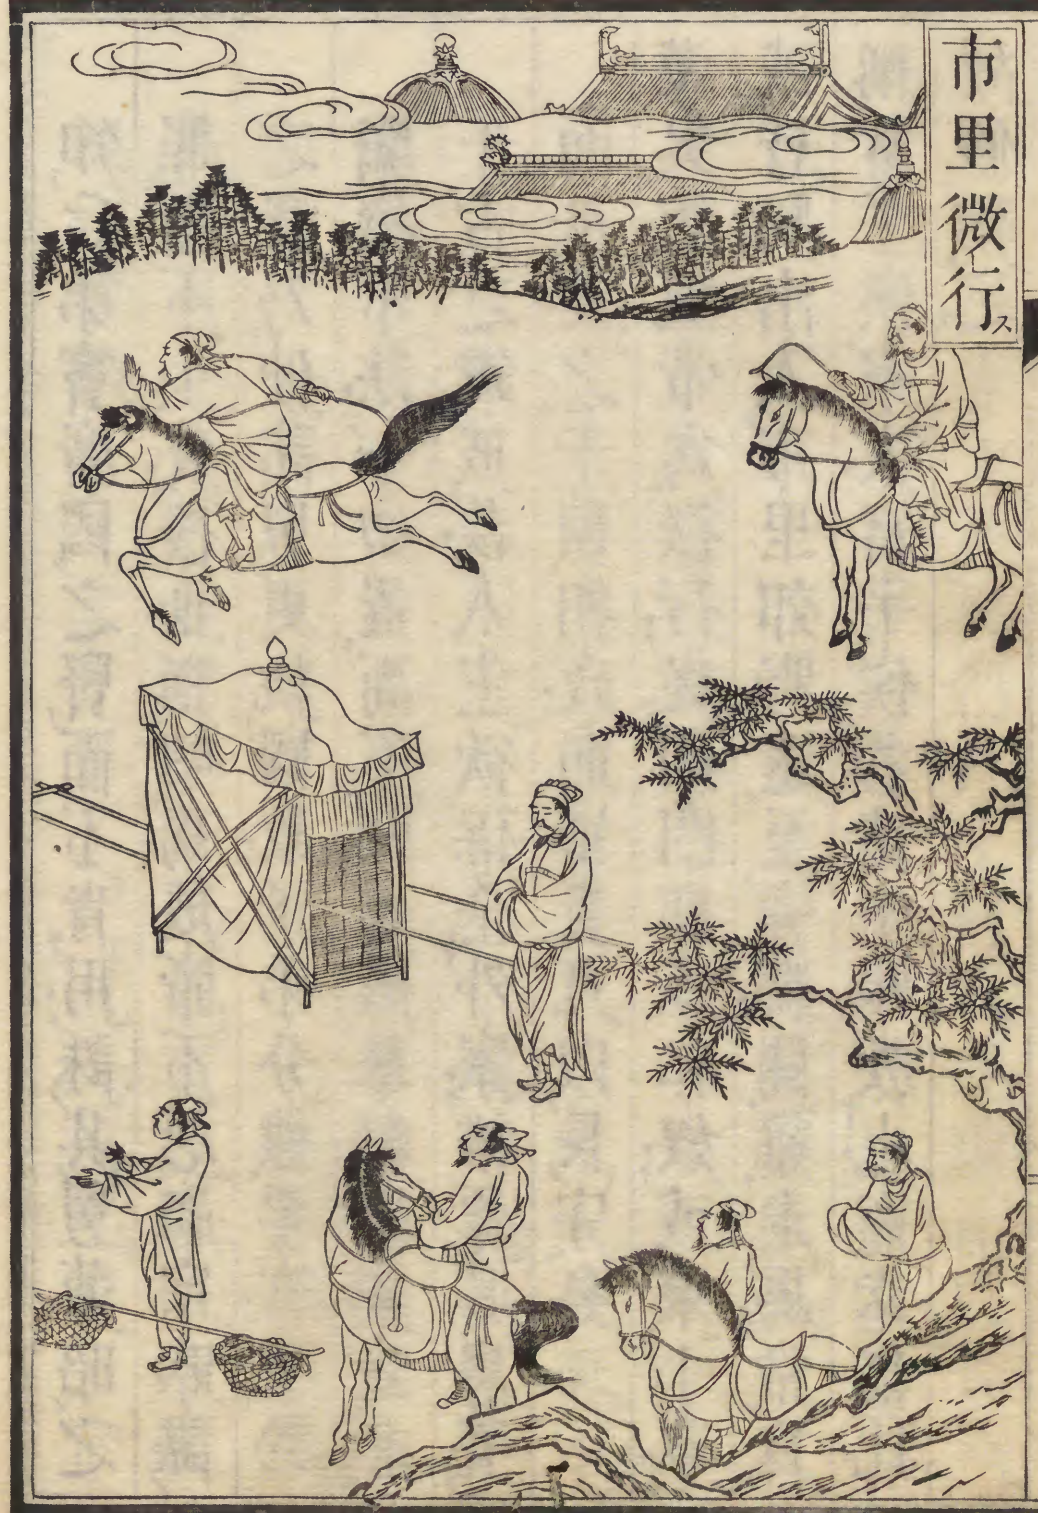 市里微行ス